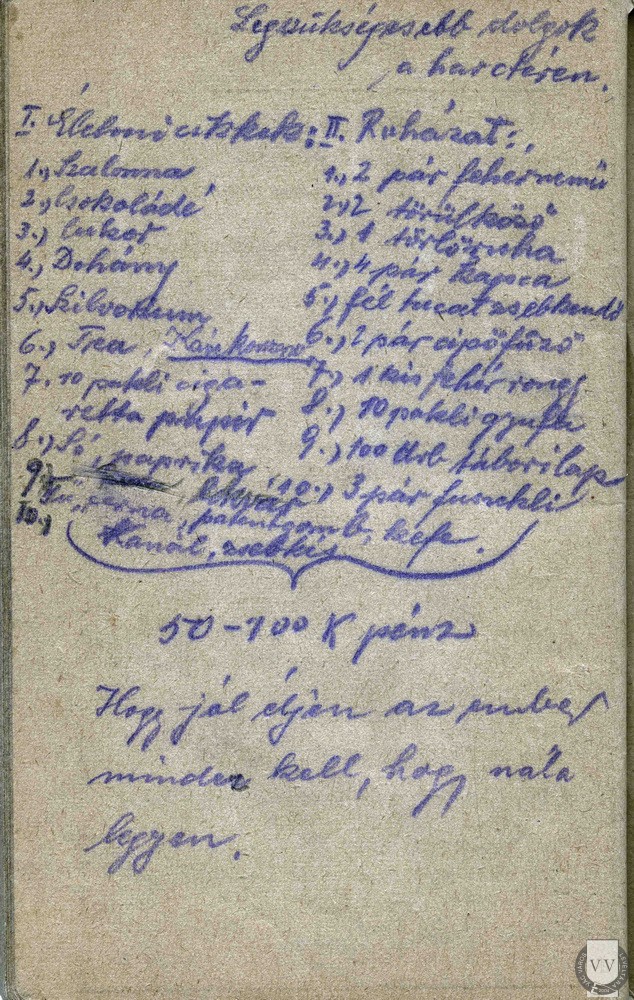 Legszükségesebb dolgok
a harctéren.
I. Élelmiczikkek:
1., Szalonna
2., Csokoládé
3.) Cukor
4., Dohány
5.)
6.) Tea,
7., 10 pakli ciga-
retta papír
8.) Só, paprika
9.)
10.) Tű, cérna, patentgomb, kefe.
Kanál, zsebkés
II. Ruházat:
1., 2 pár fehérnemü
2., 2 törülköző
3.) 1 törlőruha
4., 4 pár kapca
5., fél tucat zsebkendő
6., 2 pár cipőfűző
7.) 1 kis fehér rongy
8.) 10 pakli gyufa
9.) 100 drb tábori lap
10.) 3 pár fuszekli
50-100 K pénz
Hogy jól éljen az ember
minden kell, hogy nála
legyen.
VV